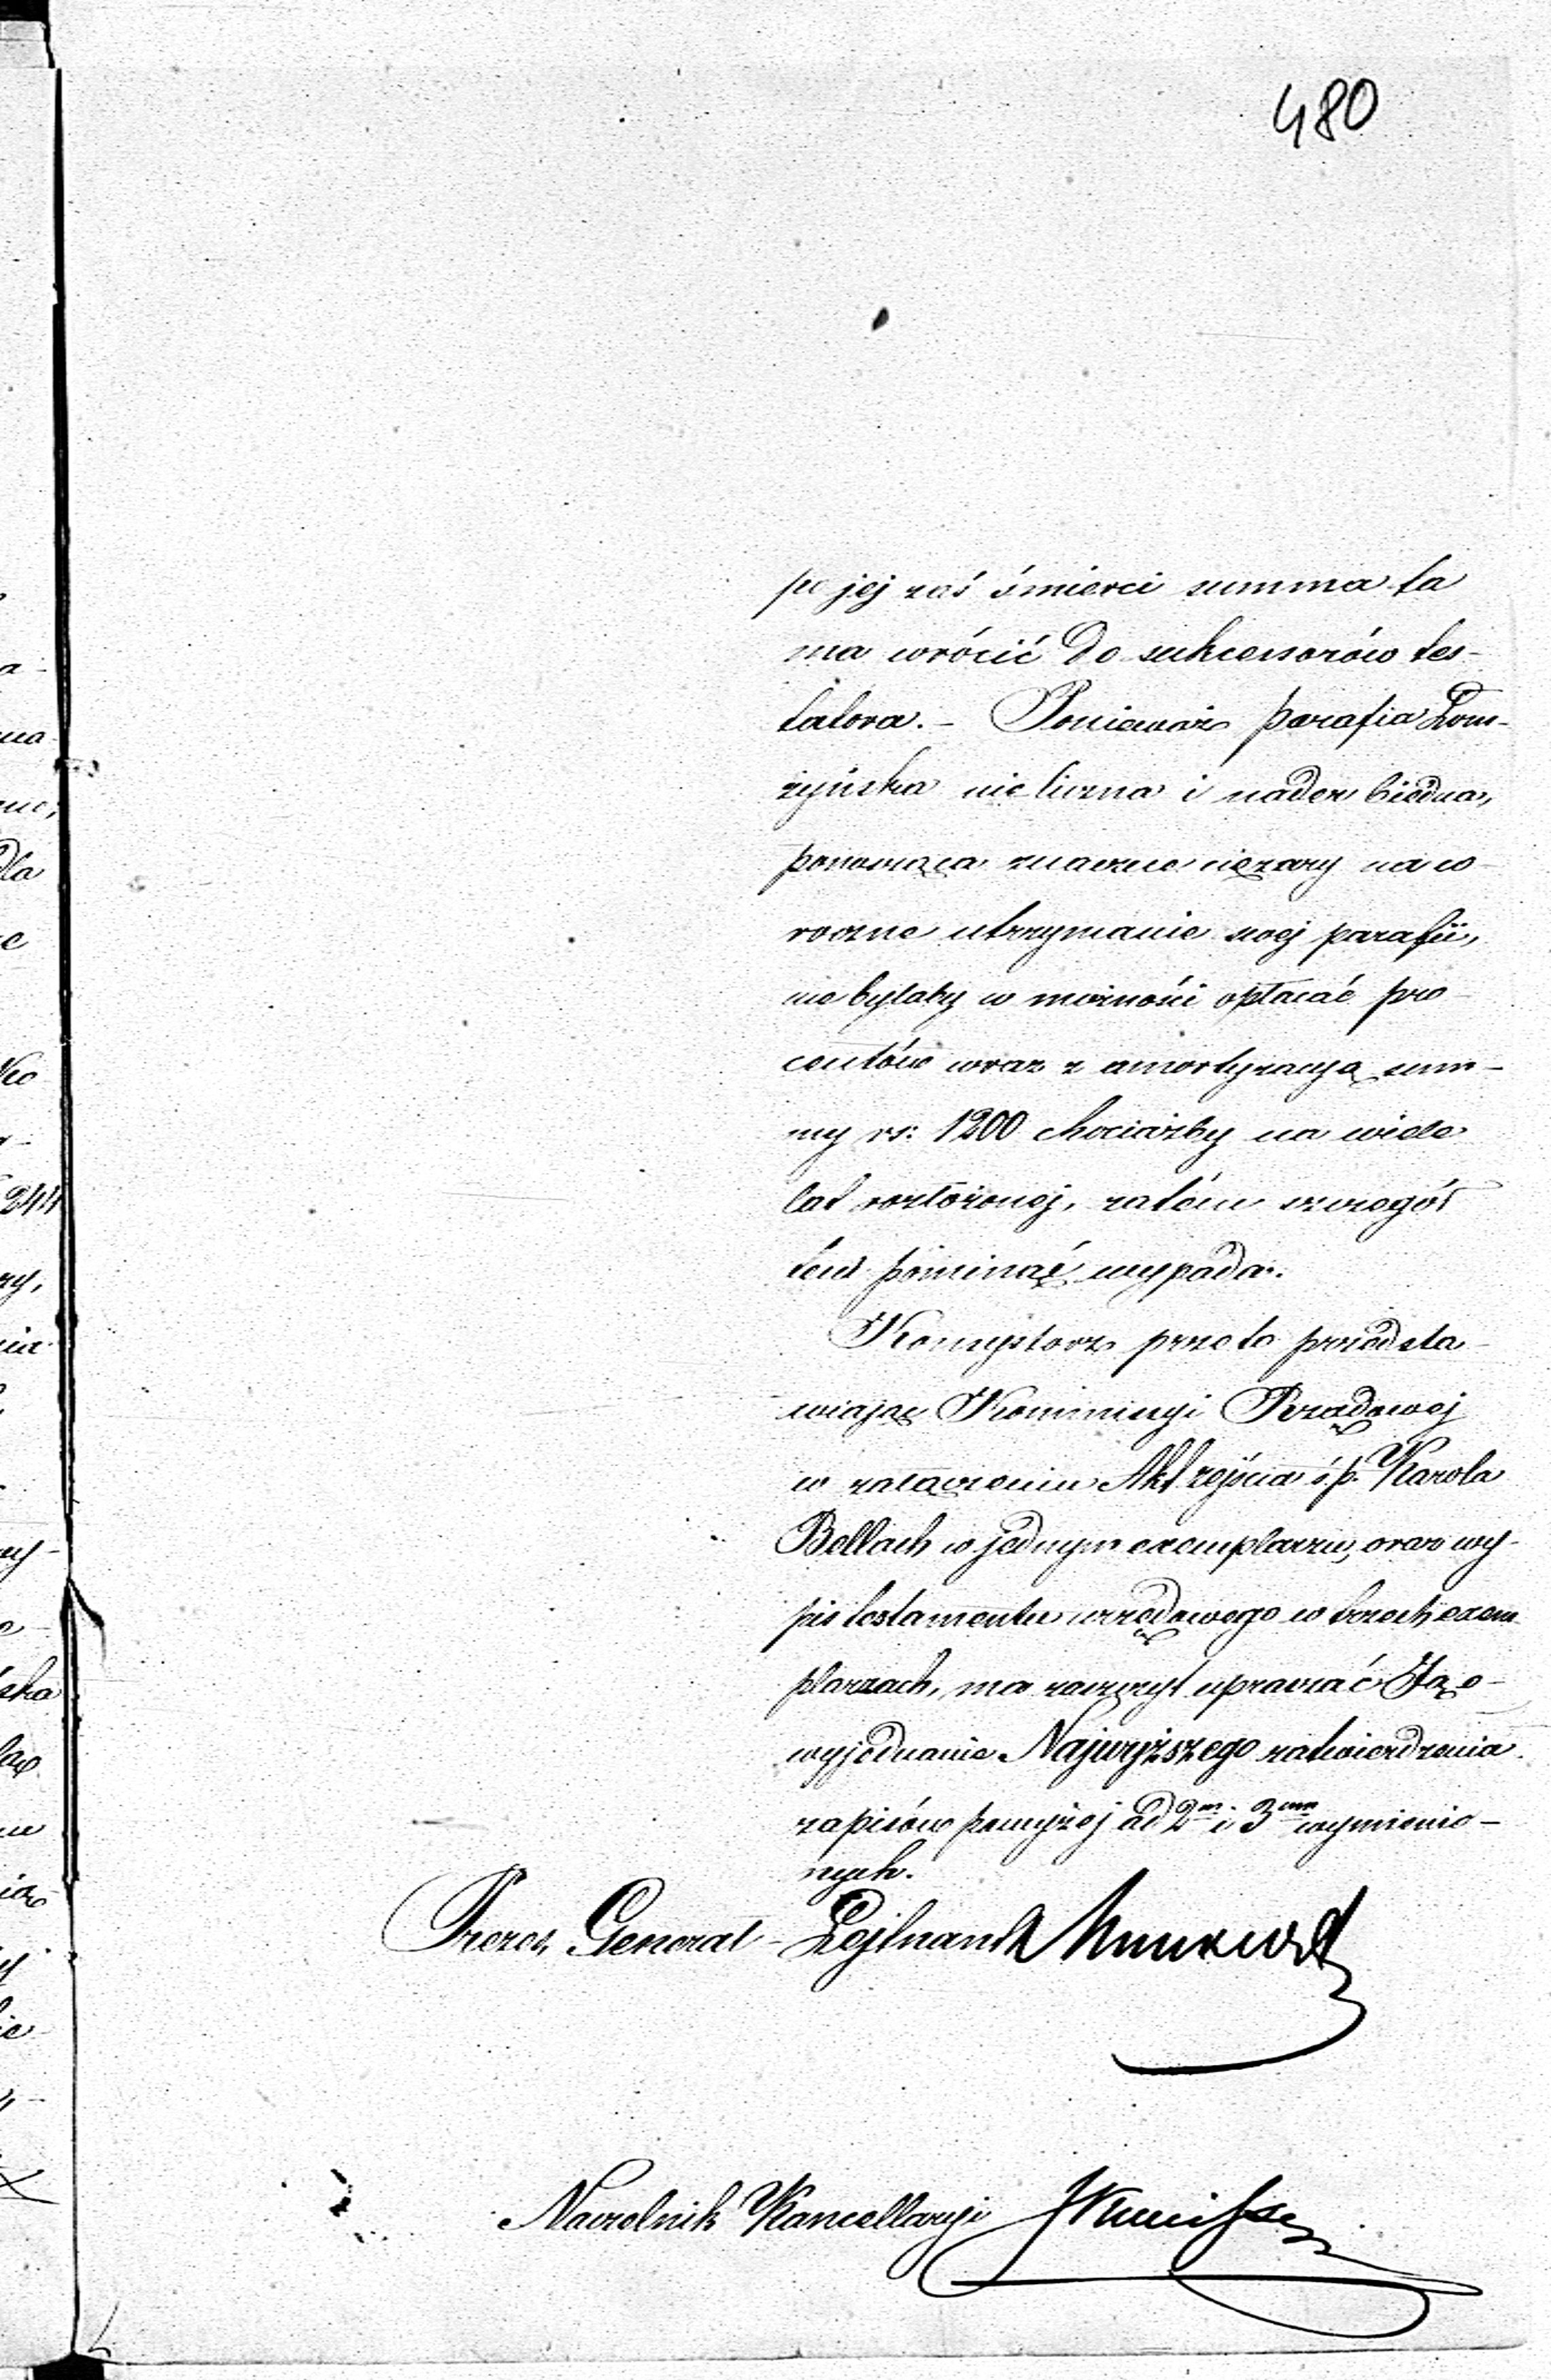 480
po jej zaś śmierci summa ta
ma wrócić do sukcessorów tes-
tatora. - Ponieważ parafia Łom-
żyńska nie liczna i nader biedna,
ponosząca znaczne ciężary na co
roczne utrzymanie swej parafii,
nie byłaby w możności opłacać pro-
centów wraz z amortyzacyą sum-
my rs: 1200 chociażby na wiele
lat rozłożonej, zatém szczegół
ten pominąć wypada.
Konsystorz przeto przedsta-
wiając Kommissyi Rządowej
w załączeniu Akt zejścia ś.p. Karola
Bellach w jednym exemplarzu, oraz wy-
pis testamentu urzędowego w trzech exem
plarzach, ma zaszczyt upraszać Ją o-
wyjednanie Najwyższego zatwierdzenia
zapisów powyżej ad 2m i 3um wymienio-
nych.
Prezes, Generał - Lejtnant
Naczelnik Kancellaryi